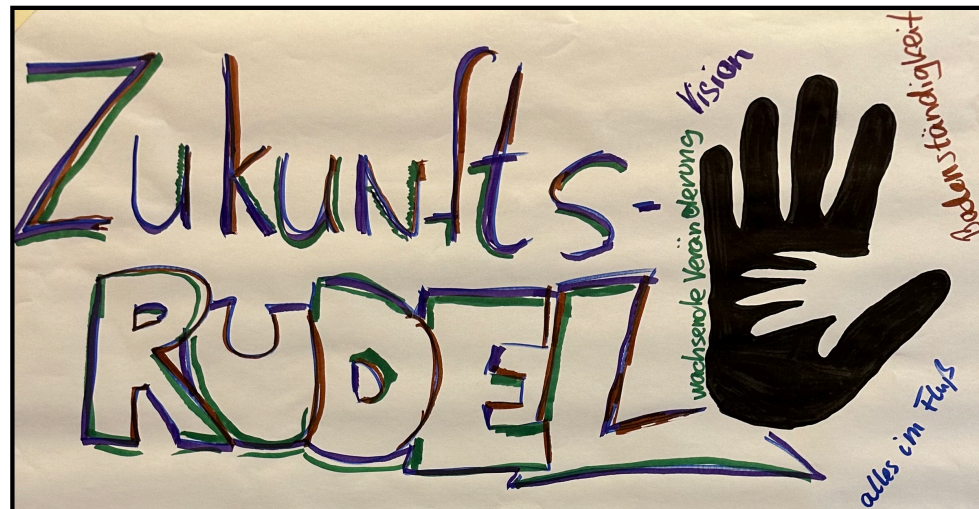 Zukunfts-
RUDEL
wachsende Veränderung
Vision
Bodenständigkeit
alles im Fluß